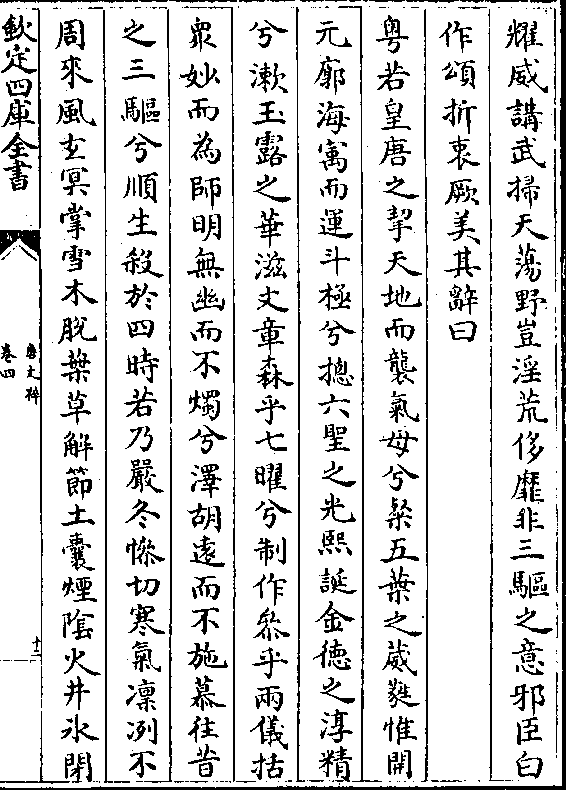 耀威講武掃天蕩野豈淫荒侈靡非三驅之意邪臣白
作頌折衷厥美其辭曰
粤若皇唐之挈天地而襲氣母兮粲五葉之葳蕤惟開
元廓海寓而運斗極兮摠六聖之光熙誕金徳之淳精
兮漱玉露之華滋文章森乎七曜兮制作參乎兩儀括
衆妙而為師明無幽而不燭兮澤胡逺而不施慕往昔
之三驅兮順生殺於四時若乃嚴冬慘切寒氣凛冽不
周來風玄冥掌雪木脱葉草解節土囊煙隂火井氷閉
欽定四庫全書
唐文粹
卷四
十三